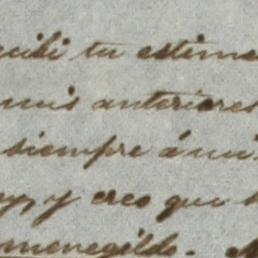 cibi tu estima
mis anteriores
siempre á mi
y, y creo que
menegildo.